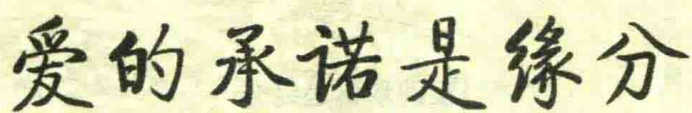 爱的承诺是缘分